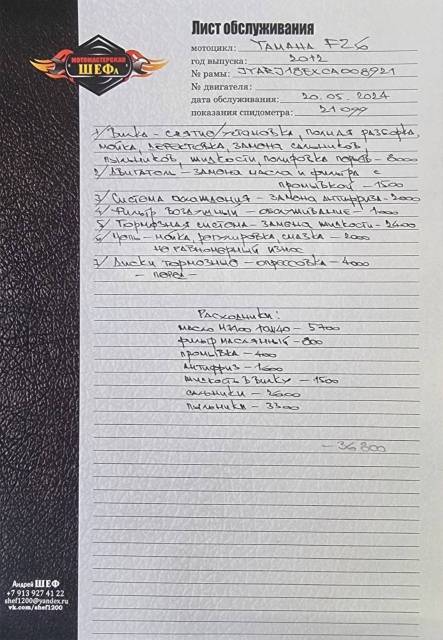 Лист обслуживания
МОТОМАСТЕРСКАЯ
ШЕФа
мотоцикл: YAMAHA FZ6
год выпуска: 2012
№ рамы: JYARJ18EXCA008921
№ двигателя:
дата обслуживания: 20.05.2024
показания спидометра: 21 099
1/ Вилка - снятие/установка, полная разборка,
мойка, дефектовка, замена сальников
пыльников, жидкости, полировка перьев - 8000
2/ Двигатель - замена масла и фильтра с
промывкой - 1500
3/ Система охлаждения - замена антифриза - 2000
4/ Фильтр воздушный - обслуживание - 1000
5/ Тормозная система - замена жидкости - 2400
6/ Цепь - мойка, регулировка смазка - 2000
неравномерный износ
7/ Диски тормозные - опрессовка - 4000
- перед -
Расходники:
масло 10W40 - 5700
фильтр маслянный - 800
промывка - 400
антифриз - 1600
жидкость в вилку - 1500
сальники - 2600
пыльники - 3300
- 36 800
Андрей ШЕФ
+7 913 927 41 22
shef1200@yandex.ru
vk.com/shef1200